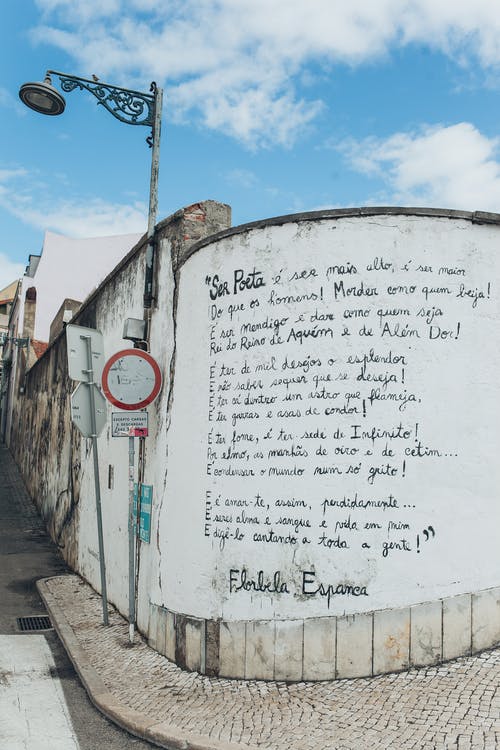 "Ser Poeta é ser mais alto, é ser maior
Do que os homens! Morder como quem beija!
É ser mendigo e dar como quem seja
Rei do Reino de Aquém e de Além Dor!
É ter de mil desejos o esplendor
E não saber sequer que se deseja!
É ter cá dentro um astro que flameja,
É ter garras e asas de condor!
É ter fome, é ter sede de Infinito!
Por elmo, as manhãs de oiro e de cetim...
É condensar o mundo num só grito!
E é amar-te, assim, perdidamente...
E seres alma e sangue e vida em mim
E dizê-lo cantando a toda a gente!"
Florbela Espanca
EXCEPTO CARGAS
E DESCARGAS